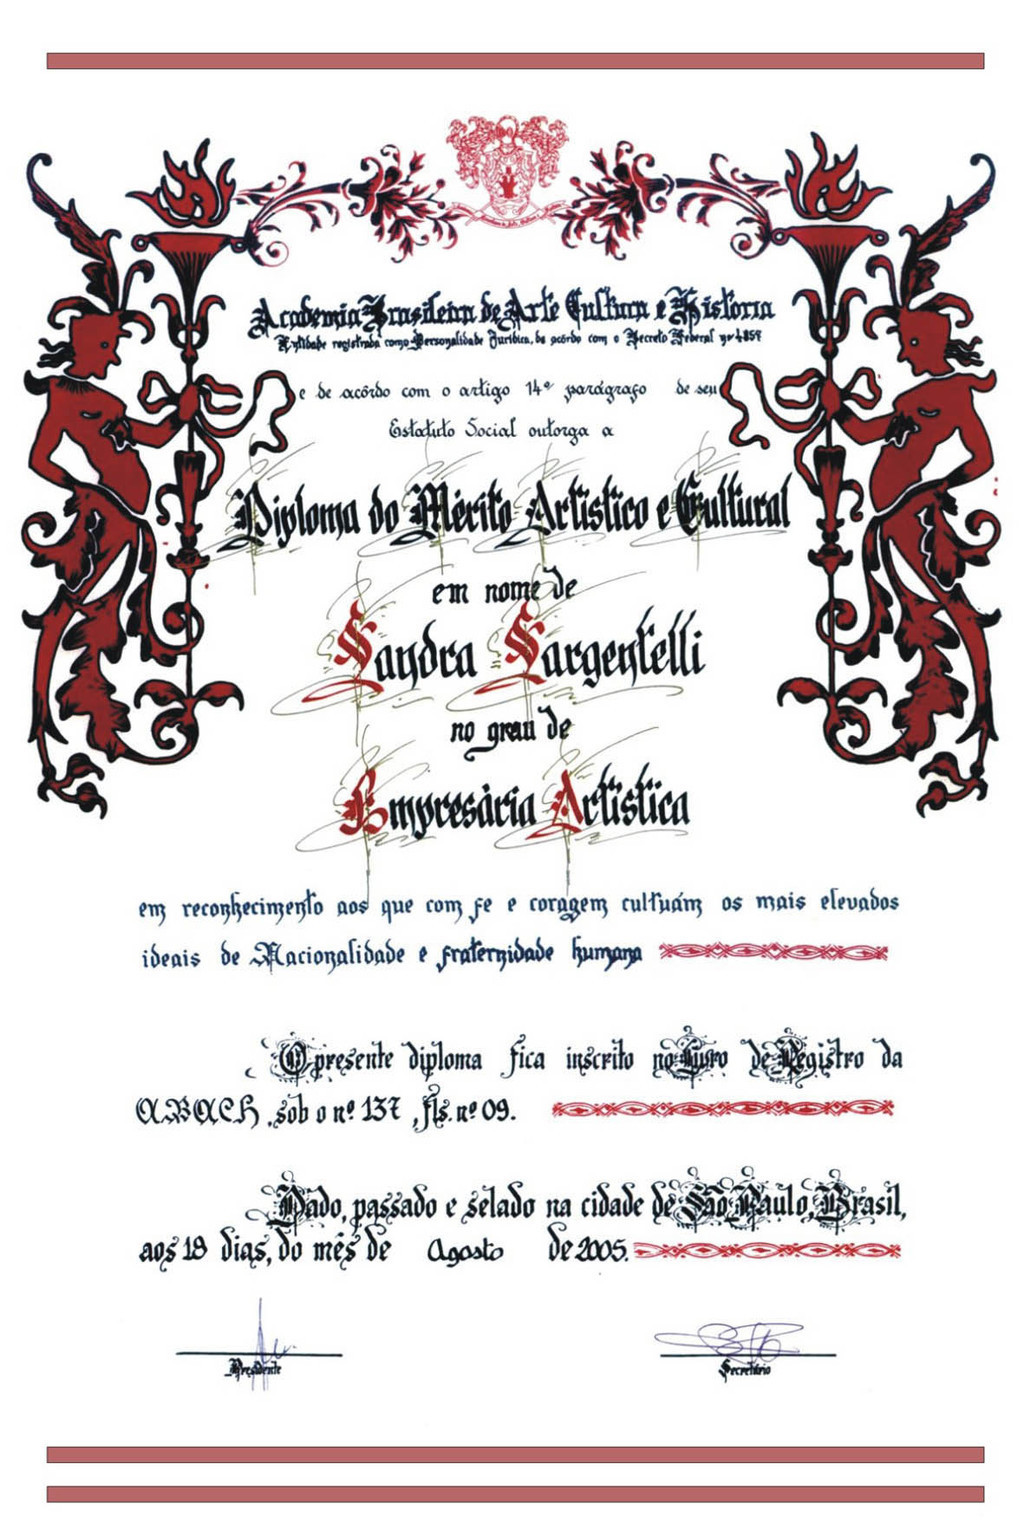 Academia Brasileira de Arte Cultura e Historia
Entidade registrada como Personalidade Jurídica, de acôrdo com o Decreto Federal nº 4857
e de acôrdo com o artigo 14º parágrafo de seu
Estatuto Social outorga a
Diploma do Mérito Artistico e Cultural
em nome de
Sandra Sargentelli
no grau de
Empresária Artistica
em reconhecimento aos que com fe e coragem cultuám os mais elevados
ideais de Nacionalidade e fraternidade humana
O presente diploma fica inscrito no Livro de Registro da
ABACH, sob o nº 137, fls. nº 09.
Dado, passado e selado na cidade de São Paulo, Brasil,
aos 18 dias, do mês de Agosto de 2005.
Presidente Secretário